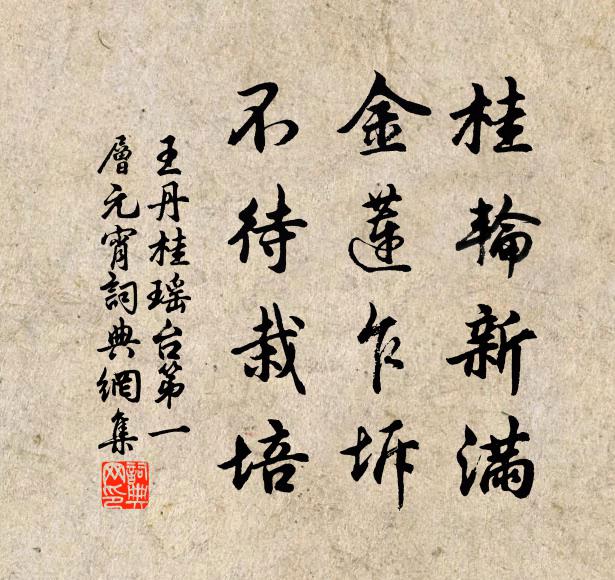 桂輪新滿
金蓮乍坼
不待栽培
王丹桂瑶台第一
層元宵詞典網集
詞典网印